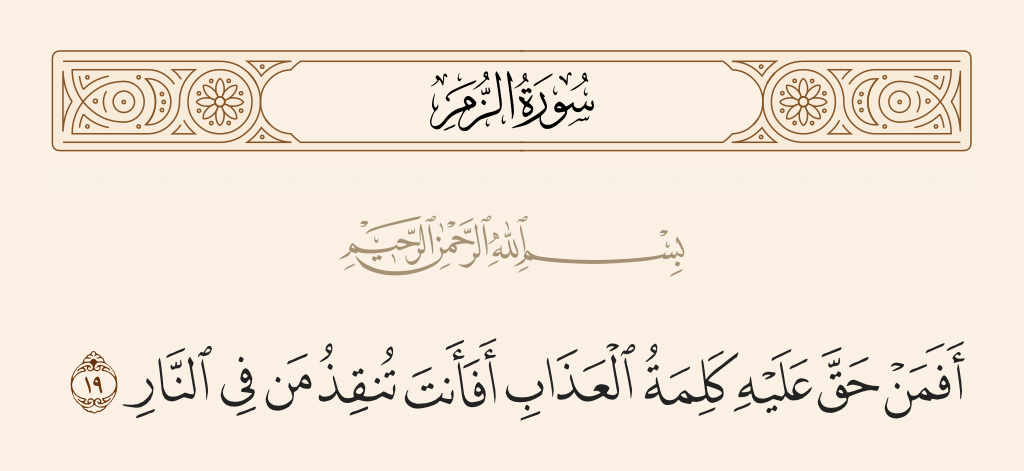 سُورَةُ الزُّمَرَ
بِسْمِ ٱللَّهِ ٱلرَّحْمَٰنِ ٱلرَّحِيمِ
أَفَمَنْ حَقَّ عَلَيْهِ كَلِمَةُ ٱلْعَذَابِ أَفَأَنتَ تُنقِذُ مَن فِى ٱلنَّارِ ١٩